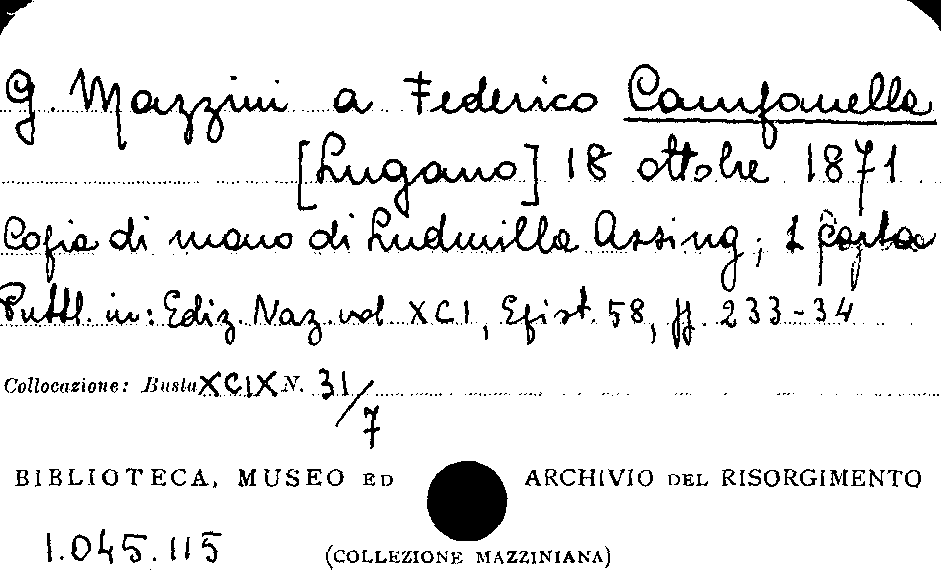 G. Mazzini a Federico Campanella
[Lugano] 18 ottobre 1871
Copia di mano di Ludmilla Assing; 1 carta
Pubbl. in: Ediz. Naz. vol XCI, Epist. 58, pp. 233-34
Collocazione: Busta XCIX N. 31/7
BIBLIOTECA, MUSEO ED ARCHIVIO DEL RISORGIMENTO
1.045.115 (COLLEZIONE MAZZINIANA)